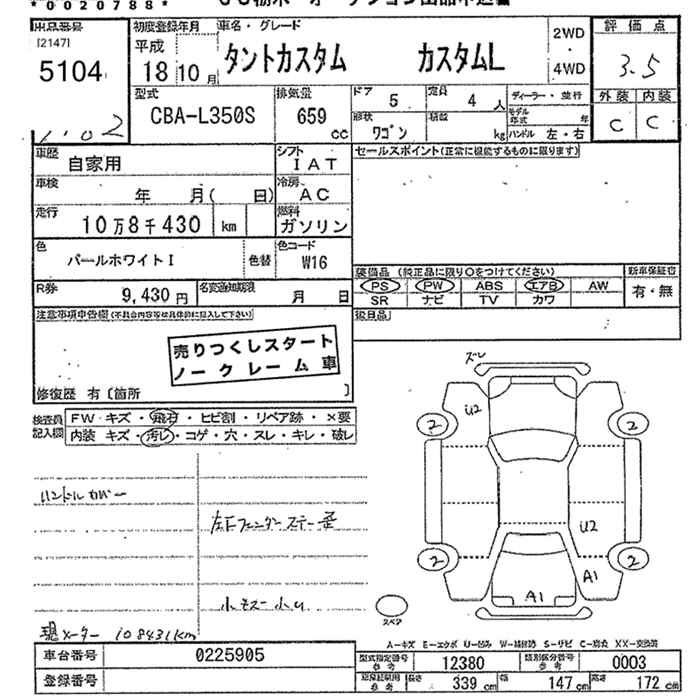 *0020788*
出品番号
[2147]
5104
1102
初度登録年月
平成
18 10 月
車名・グレード
タントカスタム カスタムL
2WD
・
4WD
評価点
3.5
外装 内装
C C
型式
CBA-L350S
排気量
659
CC
ドア
5
定員
4 人
形状
ワゴン
積載
kg
ディーラー・並行
モデル年式 年
ハンドル 左・右
車歴
自家用
シフト
IAT
車検
年 月( 日)
冷房
AC
走行
10万8千430 km
燃料
ガソリン
色
パールホワイトI
色替
色コード
W16
R券
9,430 円
名変通知期限
月 日
セールスポイント(正常に機能するものに限ります)
装備品 (純正品に限り○をつけてください)
新車保証書
PS PW ABS エアB AW
SR ナビ TV カワ
有・無
後日品
注意事項申告欄(不具合内容等は具体的に記入して下さい)
売りつくしスタート
ノークレーム車
修復歴 有〔箇所 〕
検査員
記入欄
FW キズ・飛石・ヒビ割・リペア跡・×要
内装 キズ・汚レ・コゲ・穴・スレ・キレ・破レ
ハンドルカバー
左下フェンダーステー歪
小キズ小凹
現メーター 108431km
ズレ
U2
2
2
U2
2
2
A1
A1
スペア
A―キズ E―エクボ U―凹み W―補修跡 S―サビ C―腐食 XX―交換済
車台番号
0225905
登録番号
型式指定番号
参考
12380
類別区分番号
参考
0003
長さ 339 cm
幅 147 cm
高さ 172 cm